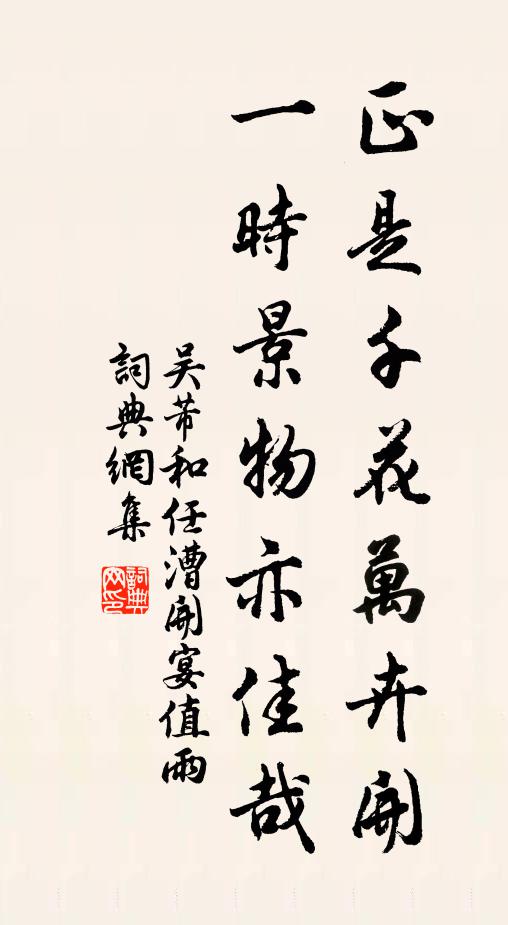 正是千花萬卉開
一時景物亦佳哉
吴芾和任漕開宴值雨
詞典網集
詞典网印